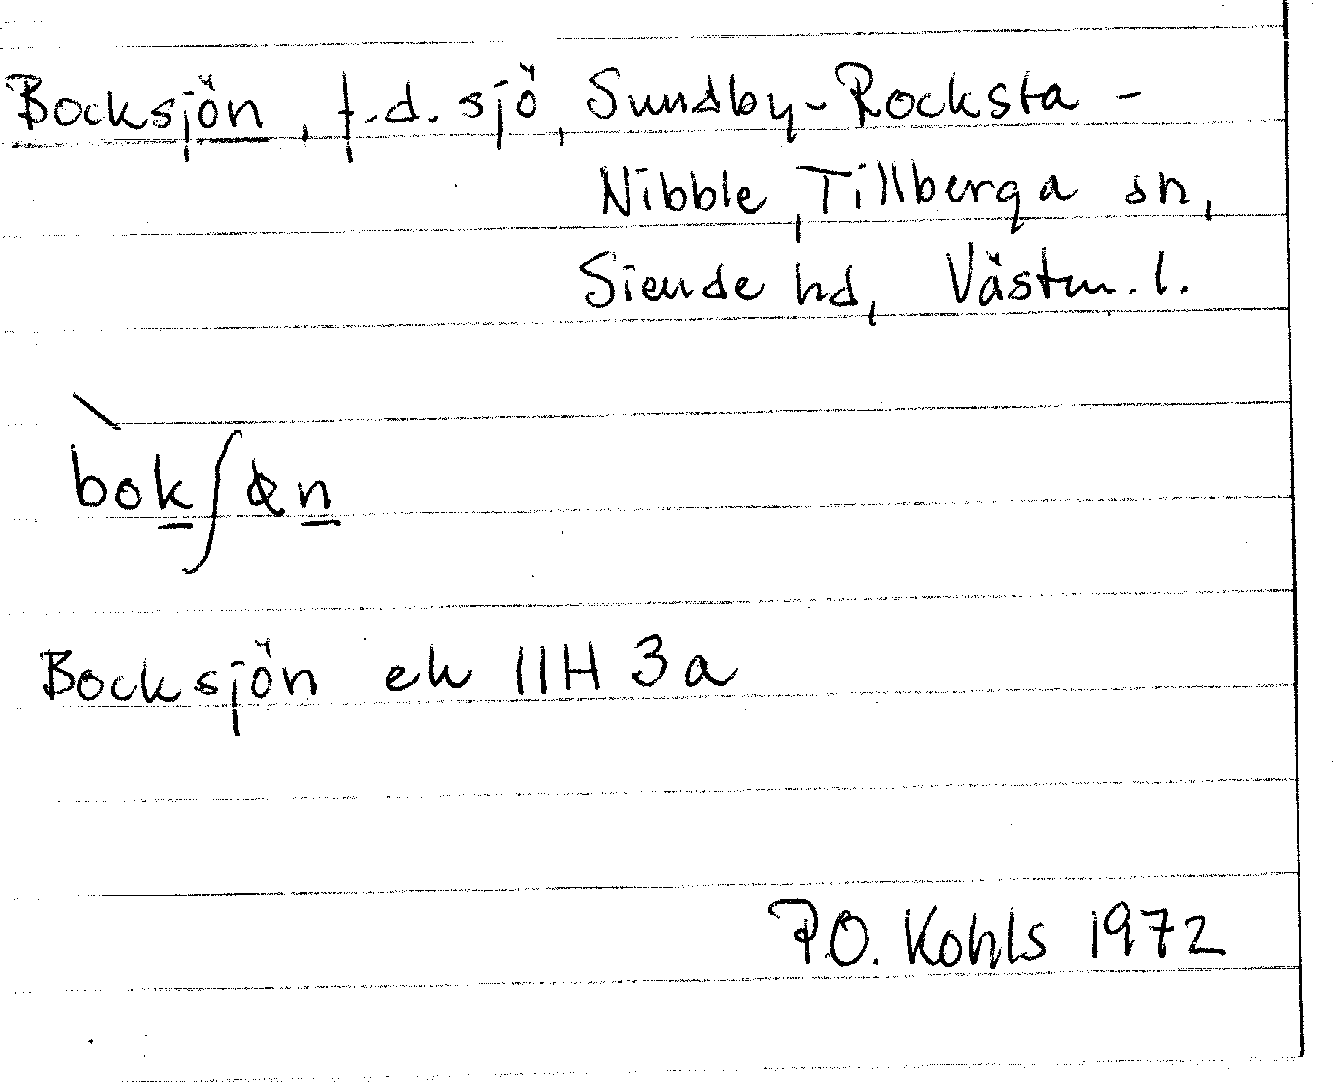 Bocksjön, f.d. sjö, Sundby-Rocksta -
Nibble, Tillberga sn,
Siende hd, Västm. l.
Bocksjön ek 11H 3a
P.O. Kohls 1972